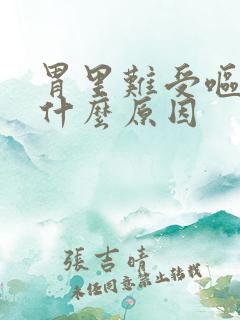 胃里難受嘔
什麼原因
張吉晴
未经同意禁止转载